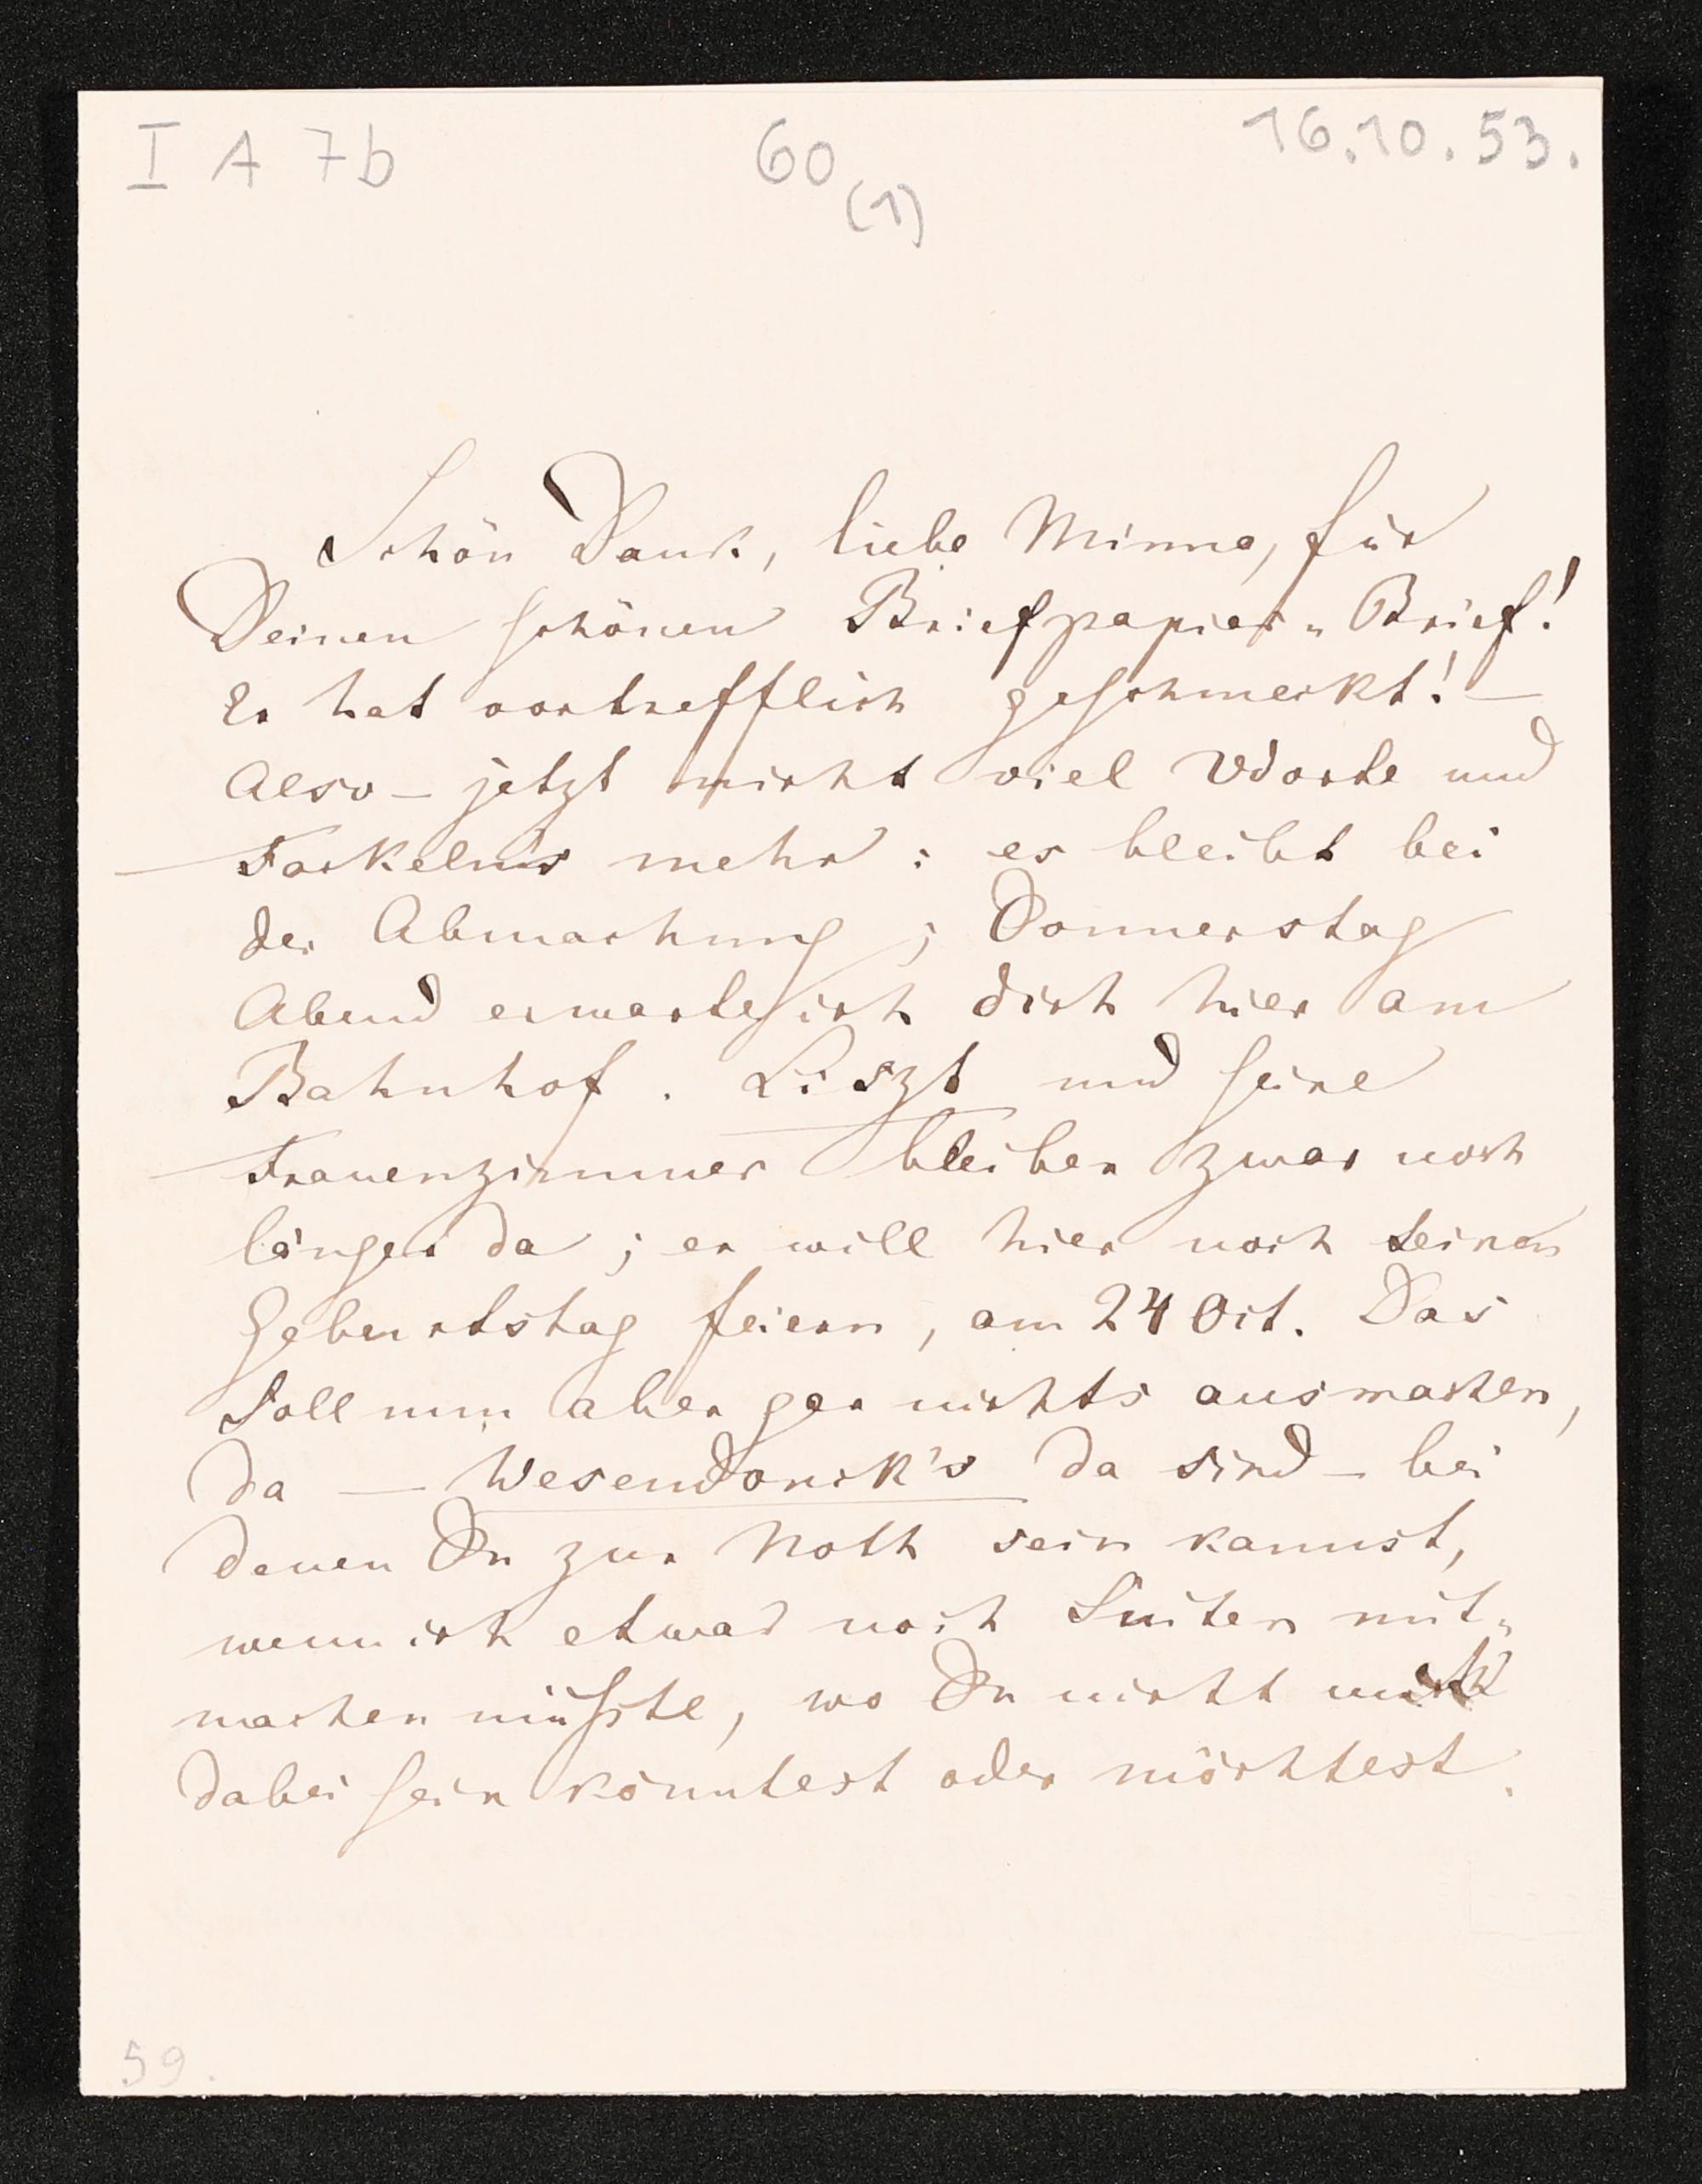 I A 7b
60
(1)
16.10.53.
Schön Dank, liebe Minna, für
Deinen schönen Briefpapier-Brief!
Er hat vortrefflich geschmeckt! —
Also – jetzt nicht viel Worte und
Fackelns mehr: es bleibt bei
der Abmachung; Donnerstag
Abend erwarte ich dich hier am
Bahnhof. Liszt und seine
Frauenzimmer bleiben zwar noch
länger da; er will hier noch seinen
Geburtstag feiern, am 24 Oct. Das
soll nun aber gar nichts ausmachen,
da — Wesendonck's da sind – bei
denen Du zur Noth sein kannst,
wenn ich etwas noch Suiten mit-
machen müsste, wo Du nicht
dabei sein könntest oder möchtest.
59.